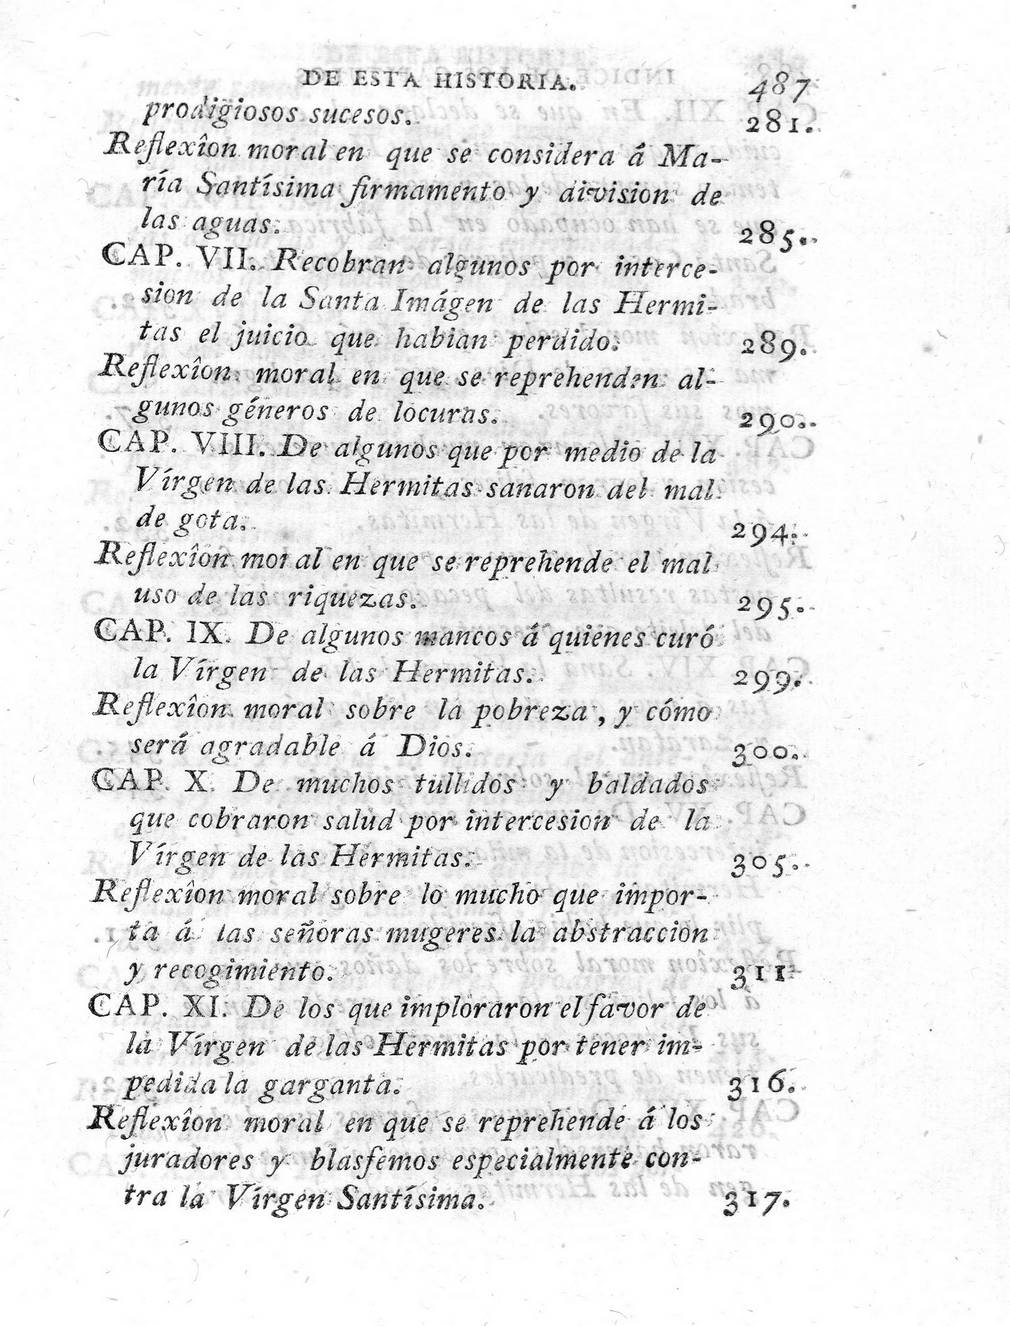 DE ESTA HISTORIA. 487
prodigiosos sucesos. 281.
Reflexîon moral en que se considera á Ma-
ría Santísima firmamento y division de
las aguas. 285.
CAP. VII. Recobran algunos por interce-
sion de la Santa Imágen de las Hermi-
tas el juicio que habian perdido. 289.
Reflexîon moral en que se reprehenden al-
gunos géneros de locuras. 290.
CAP. VIII. De algunos que por medio de la
Vírgen de las Hermitas sanaron del mal
de gota. 294.
Reflexîon moral en que se reprehende el mal
uso de las riquezas. 295.
CAP. IX. De algunos mancos á quienes curó
la Vírgen de las Hermitas. 299.
Reflexîon moral sobre la pobreza, y cómo
será agradable á Dios. 300.
CAP. X. De muchos tullidos y baldados
que cobraron salud por intercesion de la
Vírgen de las Hermitas. 305.
Reflexîon moral sobre lo mucho que impor-
ta á las señoras mugeres la abstraccion
y recogimiento. 311.
CAP. XI. De los que imploraron el favor de
la Vírgen de las Hermitas por tener im-
pedida la garganta. 316.
Reflexîon moral en que se reprehende á los
juradores y blasfemos especialmente con-
tra la Vírgen Santísima. 317.